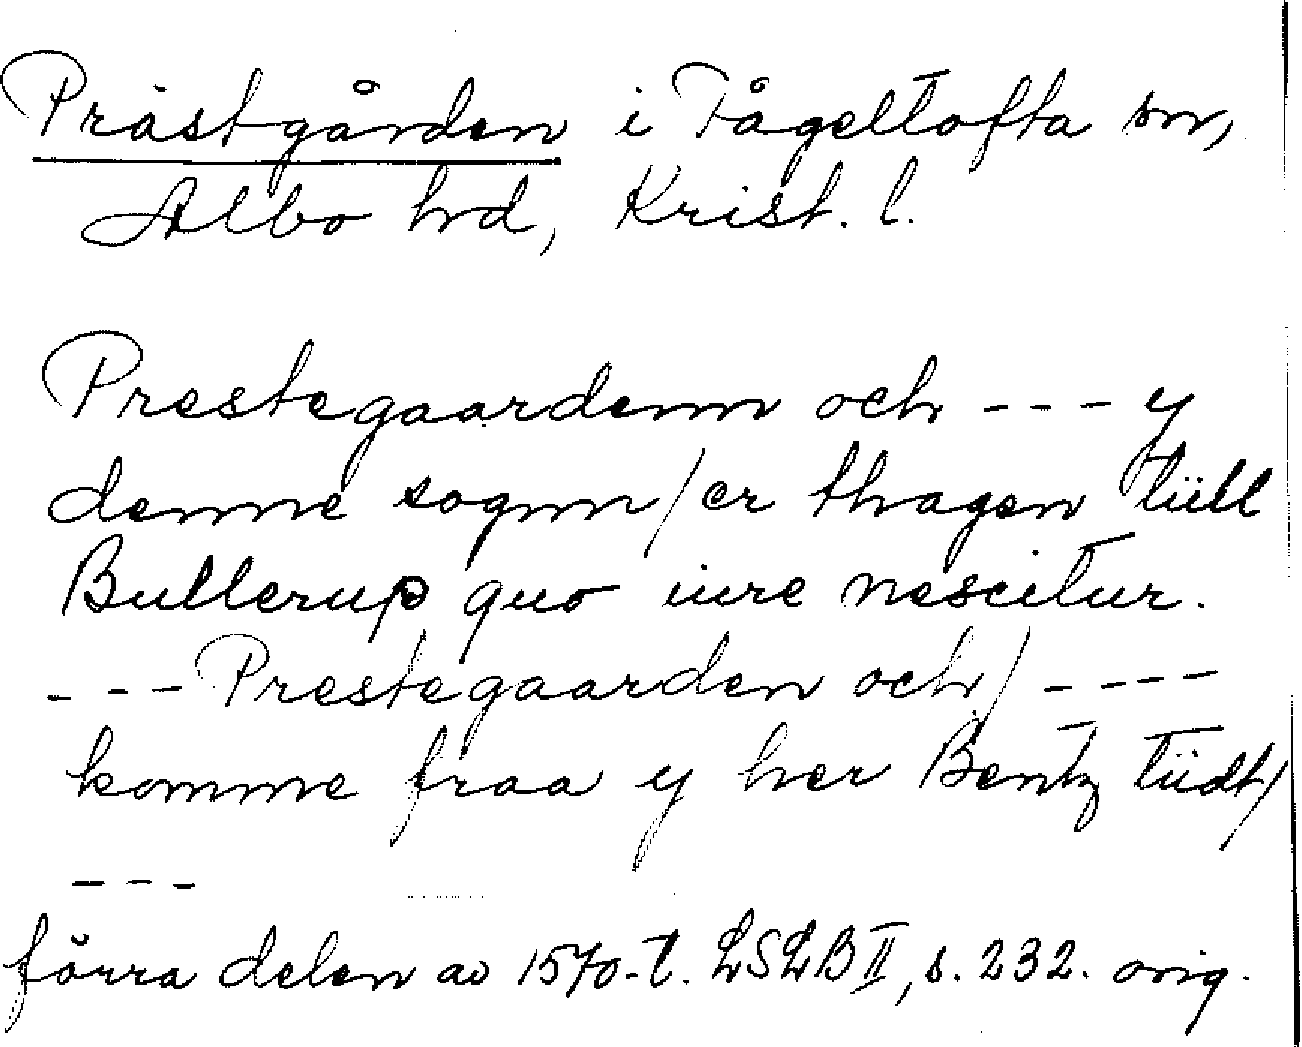 Prästgården i Fågeltofta sn,
Albo hd, Krist. l.
Prestegaardenn och --- y
denne sognn/er thagen tüll
Bullerup quo iure nescitur.
--- Prestegaarden och/ ----
komme fraa y her Bentz tüdt/
---
förra delen av 1570-t. LSLB II, s. 232. orig.